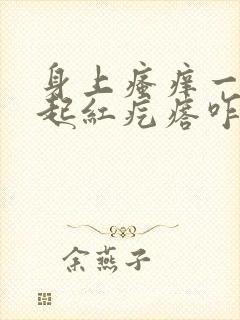 身上瘙痒一
起红疙瘩咋
余燕子